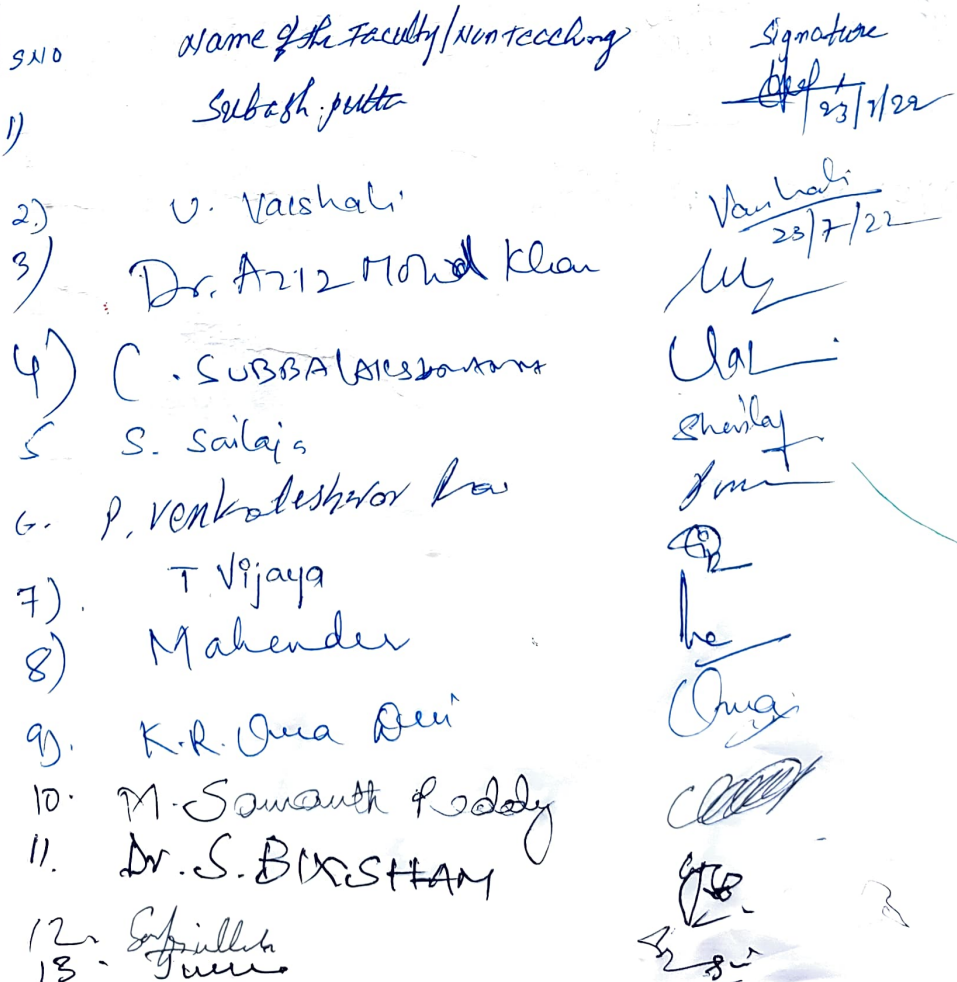 SNO Name of the Faculty/Nonteaching Signature
1) Subash.putta 23/7/22
2) U. Vaishali Vaishali 23/7/22
3) Dr. AZIZ Mohd Khan
4) C. SUBBALAKSHMAMMA
5 S. Sailaja
6. P. Venkateshwar Rao
7). T Vijaya
8) Mahender
9). K.R. Uma Devi Uma
10. M. Samanth Reddy
11. Dr. S. BIKSHAM
12.
13.